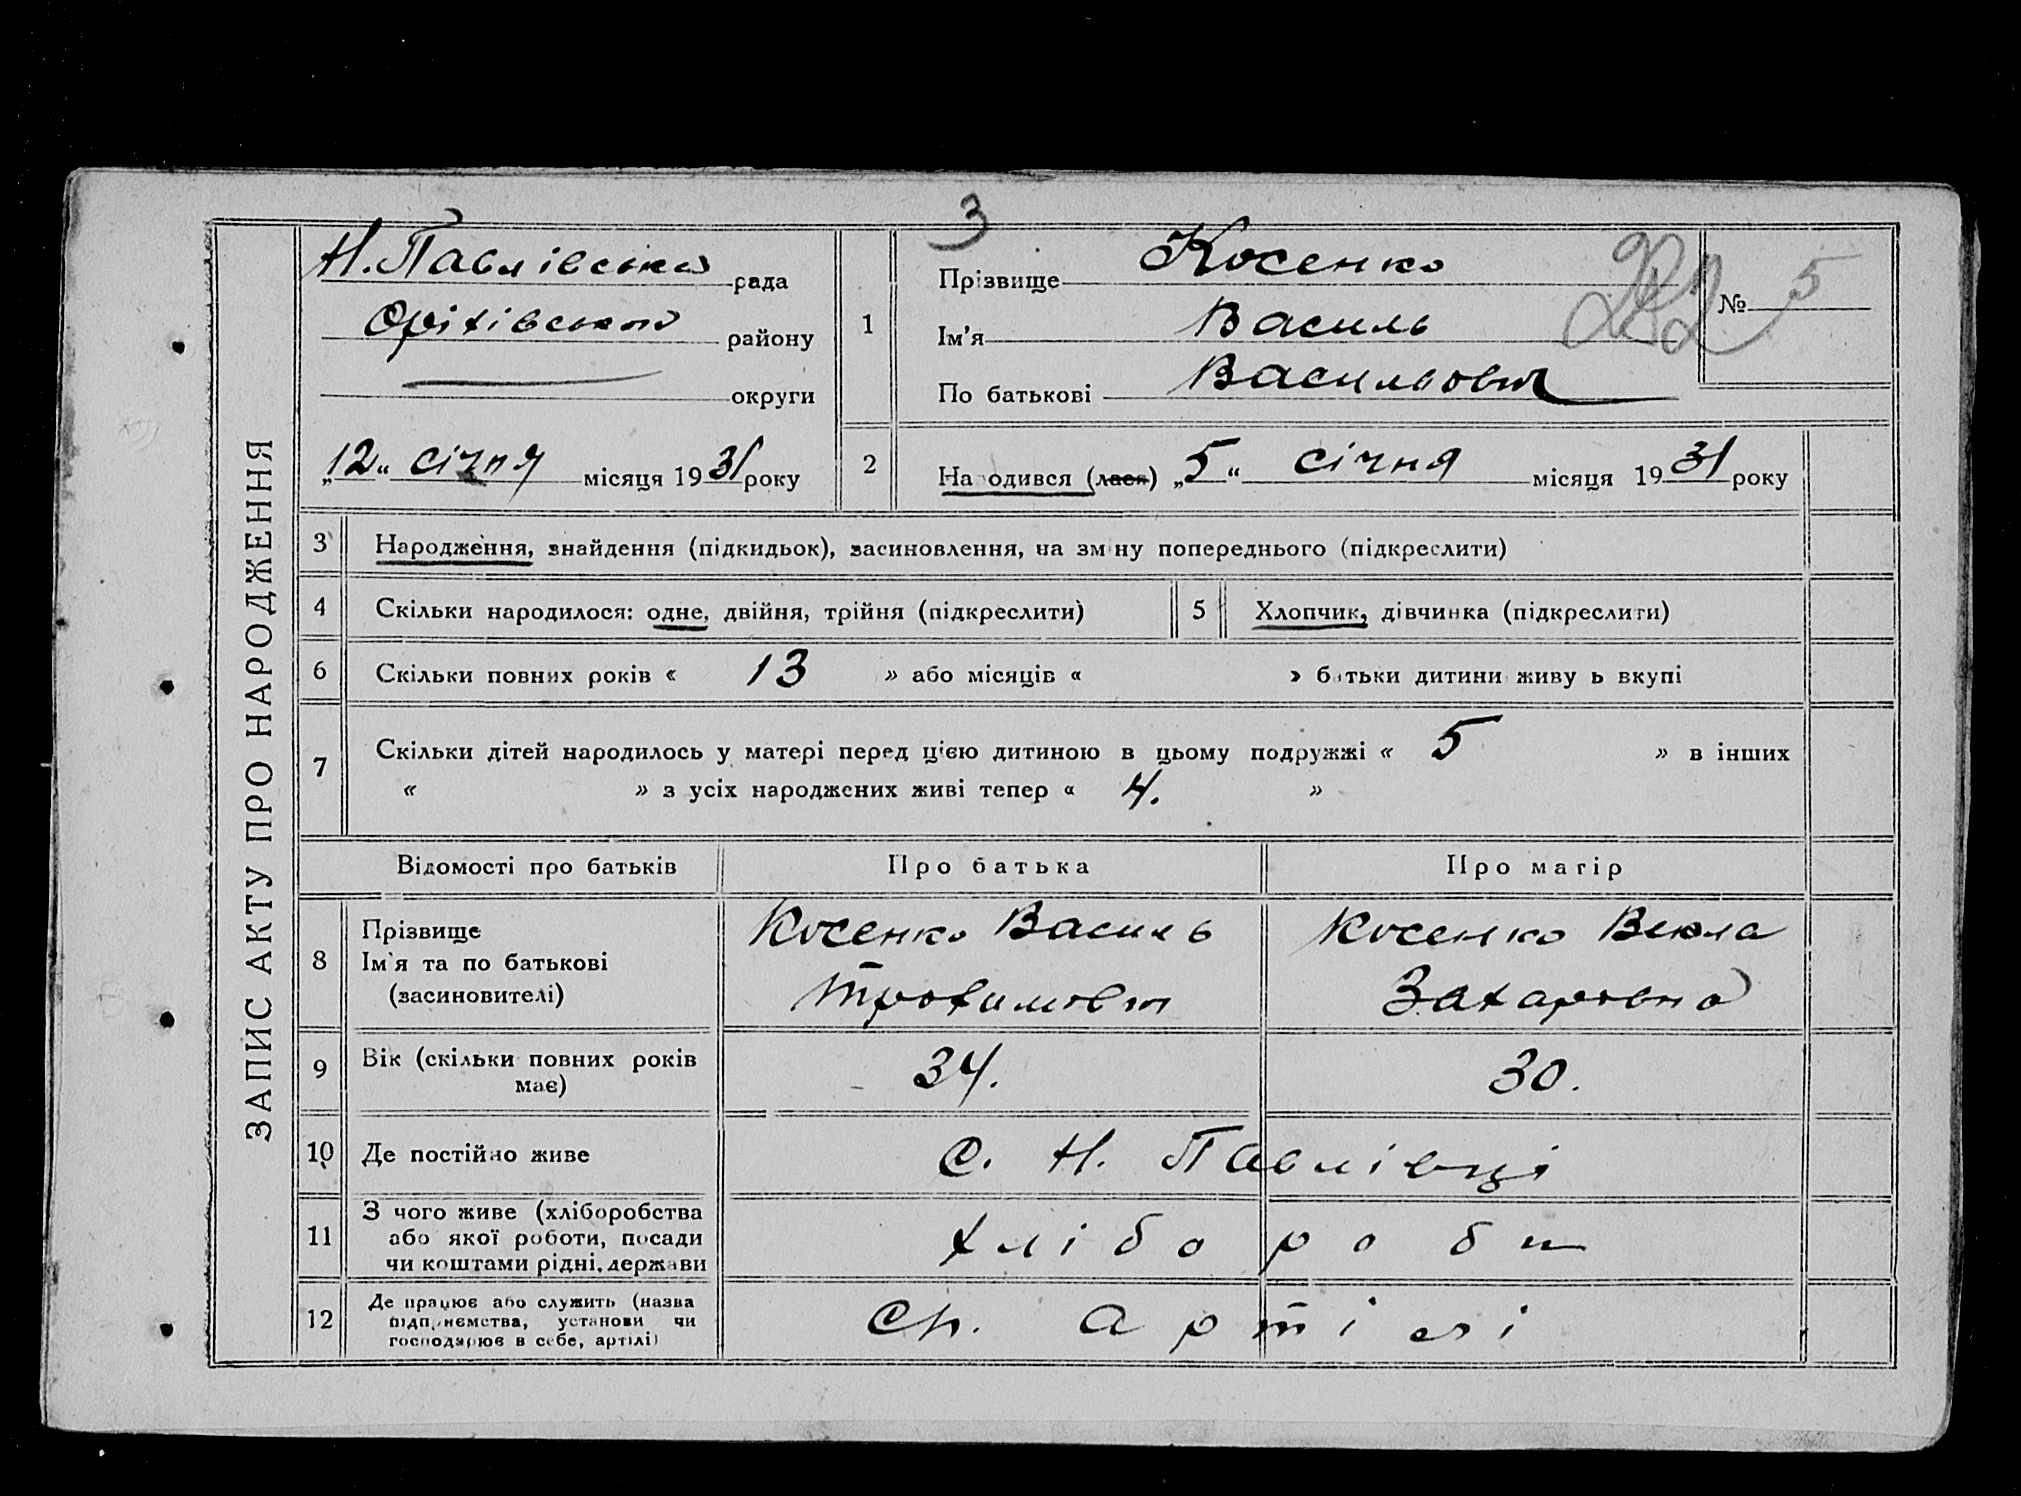 3
ЗАПИС АКТУ ПРО НАРОДЖЕННЯ
Н. Павлівська рада
Оріхівського району
округи
„12“ січня місяця 1931 року
1
Прізвище Косенко
Ім'я Василь
По батькові Васильович
№ 5
2
Народився (лася) „5“ січня місяця 1931 року
3 Народження, знайдення (підкидьок), засиновлення, на зміну попереднього (підкреслити)
4 Скільки народилося: одне, двійня, трійня (підкреслити)
5 Хлопчик, дівчинка (підкреслити)
6 Скільки повних років « 13 » або місяців « » батьки дитини живуть вкупі
7 Скільки дітей народилось у матері перед цією дитиною в цьому подружжі « 5 » в інших
« » з усіх народжених живі тепер « 4. »
Відомості про батьків Про батька Про матір
8
Прізвище
Ім'я та по батькові
(засиновителі)
Косенко Василь
Трохимович
Косенко Векла
Захаровна
9
Вік (скільки повних років
має)
34.
30.
10 Де постійно живе
с. Н. Павлівці
11
З чого живе (хліборобства
або якої роботи, посади
чи коштами рідні, держави
хлібороби
12
Де працює або служить (назва
підприємства, установи чи
господарює в себе, артілі)
артілі